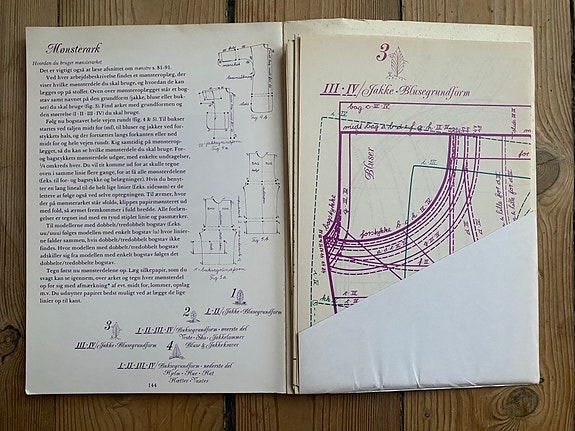 Mønsterark
Hvordan du bruger mønsterarket
Det er vigtigt også at læse afsnittet om mønstre s. 81-91.
Ved hver arbejdsbeskrivelse findes et mønsteroplæg, der
viser hvilke mønsterdele du skal bruge, og hvordan de kan
lægges op på stoffet. Oven over mønsteroplægget står et bog-
stav samt navnet på den grundform (jakke, bluse eller buk-
ser) du skal bruge (fig. 3). Find arket med grundformen og
den størrelse (I - II - III - IV) du skal bruge.
Følg nu bogstavet hele vejen rundt (fig. 4 & 5). Til bukser
startes ved taljen midt for (mf), til bluser og jakker ved
stykkets hals, og det forreste langs forkanten eller ned
midt for og hele vejen rundt. Kig samtidig på mønsterop-
lægget, så du kan se hvilke mønsterdele du skal bruge. For-
og bagstykkets mønsterdele udgør, med enkelte undtagelser,
¼ omkreds hver. Du vil tit komme ud for at skulle tegne
oven i samme linie flere gange, for at få alle mønsterdelene
(f.eks. til for- og bagstykke og belægninger). Hvis du benyt-
ter en lang lineal til de helt lige linier (f.eks. sidesøm) er det
lettere at følge også ved selve optegningen. Til ærmer, hvor
der på mønsterarket står afolds, klippes papirmønsteret ud
med fold, så ærmet fremkommer i fuld bredde. Alle forlæn-
gelser er tegnet ind med en tynd stiplet linie og pasmærker.
Til modellerne med dobbelt/tredobbelt bogstav (f.eks.
uu/uuu) følges modellen med enkelt bogstav (u) hvor linier-
ne falder sammen, hvis dobbelt/tredobbelt bogstav ikke
findes. Hvor modellen med dobbelt/tredobbelt bogstav
adskiller sig fra modellen med enkelt bogstav følges det
dobbelte/tredobbelte bogstav.
Tegn først nu mønsterdelene op. Læg silkepapir, som du
svagt kan se igennem, over arket og tegn hver mønsterdel
op for sig med afmærkning* af evt. midt for, lommer, opslag
m.v. Udnytter papiret bedst muligt ved at lægge de lige
linier op til kant.
1
I-II/Jakke-Blusegrundform
2
I-II-III-IV/Buksegrundform - øverste del
Veste - Sko - Jakkelommer
3
III-IV/Jakke-Blusegrundform
Bluse & Jakkekraver
4
I-II-III-IV/Buksegrundform - nederste del
Hjelm - Hue - Hat
Hætter - Vanter
144
fig. 4 a
fig. 5 a
3
III-IV/Jakke-Blusegrundform
bag c-III-IV
Bluser